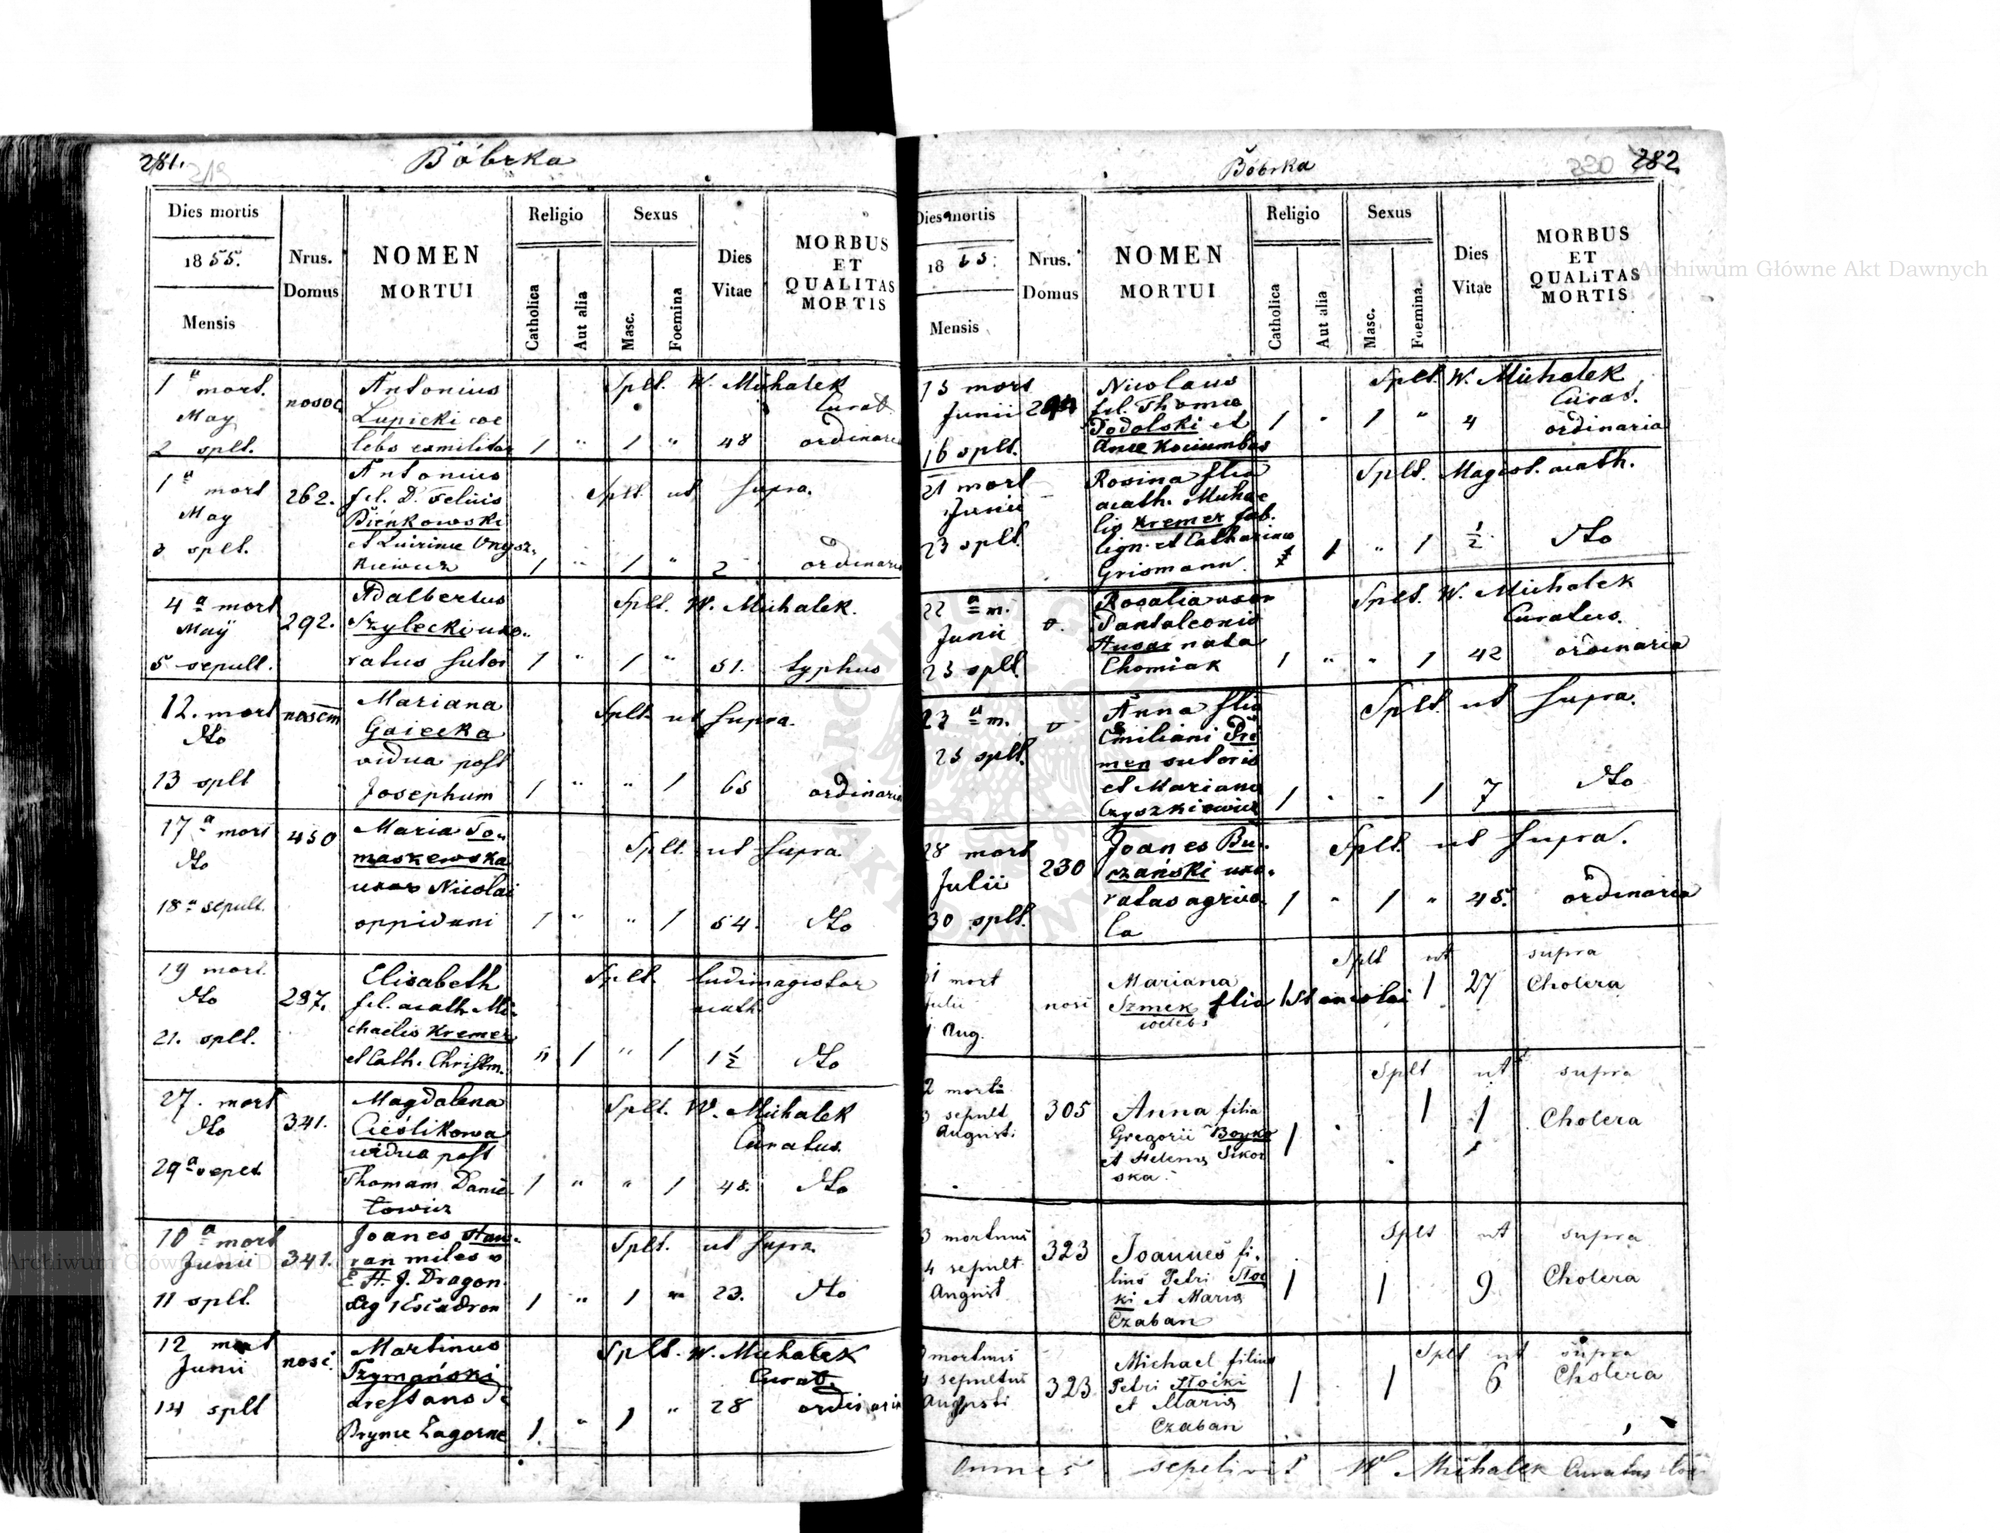 281.
219
Bóbrka
Dies mortis
1855.
Mensis
Nrus.
Domus
NOMEN
MORTUI
Religio
Catholica
Aut alia
Sexus
Masc.
Foemina
Dies
Vitae
MORBUS
ET
QUALITAS
MORTIS
1a mort.
May
2 splt.
nosoc
Antonius
Lupicki coe
lebs exmilitar
Splt. W. Michalek
Curat.
1 " 1 " 48 ordinaria
1a mort
May
3 splt.
262.
Antonius
fil. D. Felicis
Bieńkowski
et Quirinae Onysz-
kiewicz
Splt. ut supra.
1 " 1 " 2 ordinaria
4a mort
May
5 sepult.
292.
Adalbertus
Szylecki uxo-
ratus sutor
Splt. W. Michalek.
1 " 1 " 51. typhus
12. mort
dto
13 splt
Mariana
Gaiecka
vidua post
Josephum
Splt. ut supra.
1 " " 1 65 ordinaria
17a mort
dto
18a sepult.
450
Maria To-
maskewska
uxor Nicolai
oppidani
Splt. ut supra
1 " " 1 54. dto
19 mort.
dto
21. splt.
297.
Elisabeth
fil. acath. Mi-
chaelis Kremer
et Cath. Christm.
Splt. ludimagister
acath.
" 1 " 1 1 1/2 dto
27. mort
dto
29a sepet
341.
Magdalena
Cieślikowa
vidua post
Thomam Danie-
lowicz
Splt. W. Michalek
Curatus.
1 " " 1 48. dto
10a mort
Junii
11 splt.
341.
Joanes
miles
E. H. J. Dragon.
1 Escadron
Splt. ut supra.
1 " 1 " 23. dto
12 mort
Junii
14 splt
nosc.
Martinus
Szymański
Splt. W. Michalek
Curat.
1. " 1 " 28 ordinaria
282.
220
Bóbrka
Dies mortis
18
Mensis
Nrus.
Domus
NOMEN
MORTUI
Religio
Catholica
Aut alia
Sexus
Masc.
Foemina.
Dies
Vitae
MORBUS
ET
QUALITAS
MORTIS
15 mort
Junii
16 splt.
Nicolaus
fil. Thomae
Podolski et
Anae
Splt. W. Michalek
Curat.
1 " 1 " 4 ordinaria
21 mort
Junii
23 splt.
Rosina flia
acath. Michae
lis Kremer fab.
lign. et Catharinae
Grismann.
Splt. Magist. acath.
1 " 1 1/2 dto
22 a m.
Junii
23 splt.
Rosalia uxor
Pantaleonis
Husar nata
Chomiak
Splt. W. Michalek
Curatus.
1 " " 1 42 ordinaria
23 a m.
25 splt.
Anna flia
Emiliani Pri
men sutoris
et Mariana
Czyszkiewicz
Splt. ut supra.
1 " " 1 7 dto
28 mort
Julii
30 splt.
230
Joanes Bu-
czański uxo-
ratus agrico-
la
Splt. ut supra.
1 " 1 " 45. ordinaria
31 mort
Julii
1 Aug.
Mariana
Szmek flia Stanislai
Splt ut supra
1 27 Cholera
2 mort
3 sepult
Augusti
305
Anna filia
Gregorii Boyko
et Helena Sikor
ska.
Splt ut supra
1 1 1 Cholera
3 mortuus
4 sepult
August.
323
Joannes fi-
lius Petri Stoc
ki et Maria
Czaban
Splt ut supra
1 1 9 Cholera
mortuus
4 sepultus
Augusti
323
Michael filius
Petri Stocki
et Maria
Czaban
Splt ut supra
1 1 6 Cholera
Omnes sepelivit W Michalek Curatus loci
Archiwum Główne Akt Dawnych
Archiwum Główne Akt Dawnych